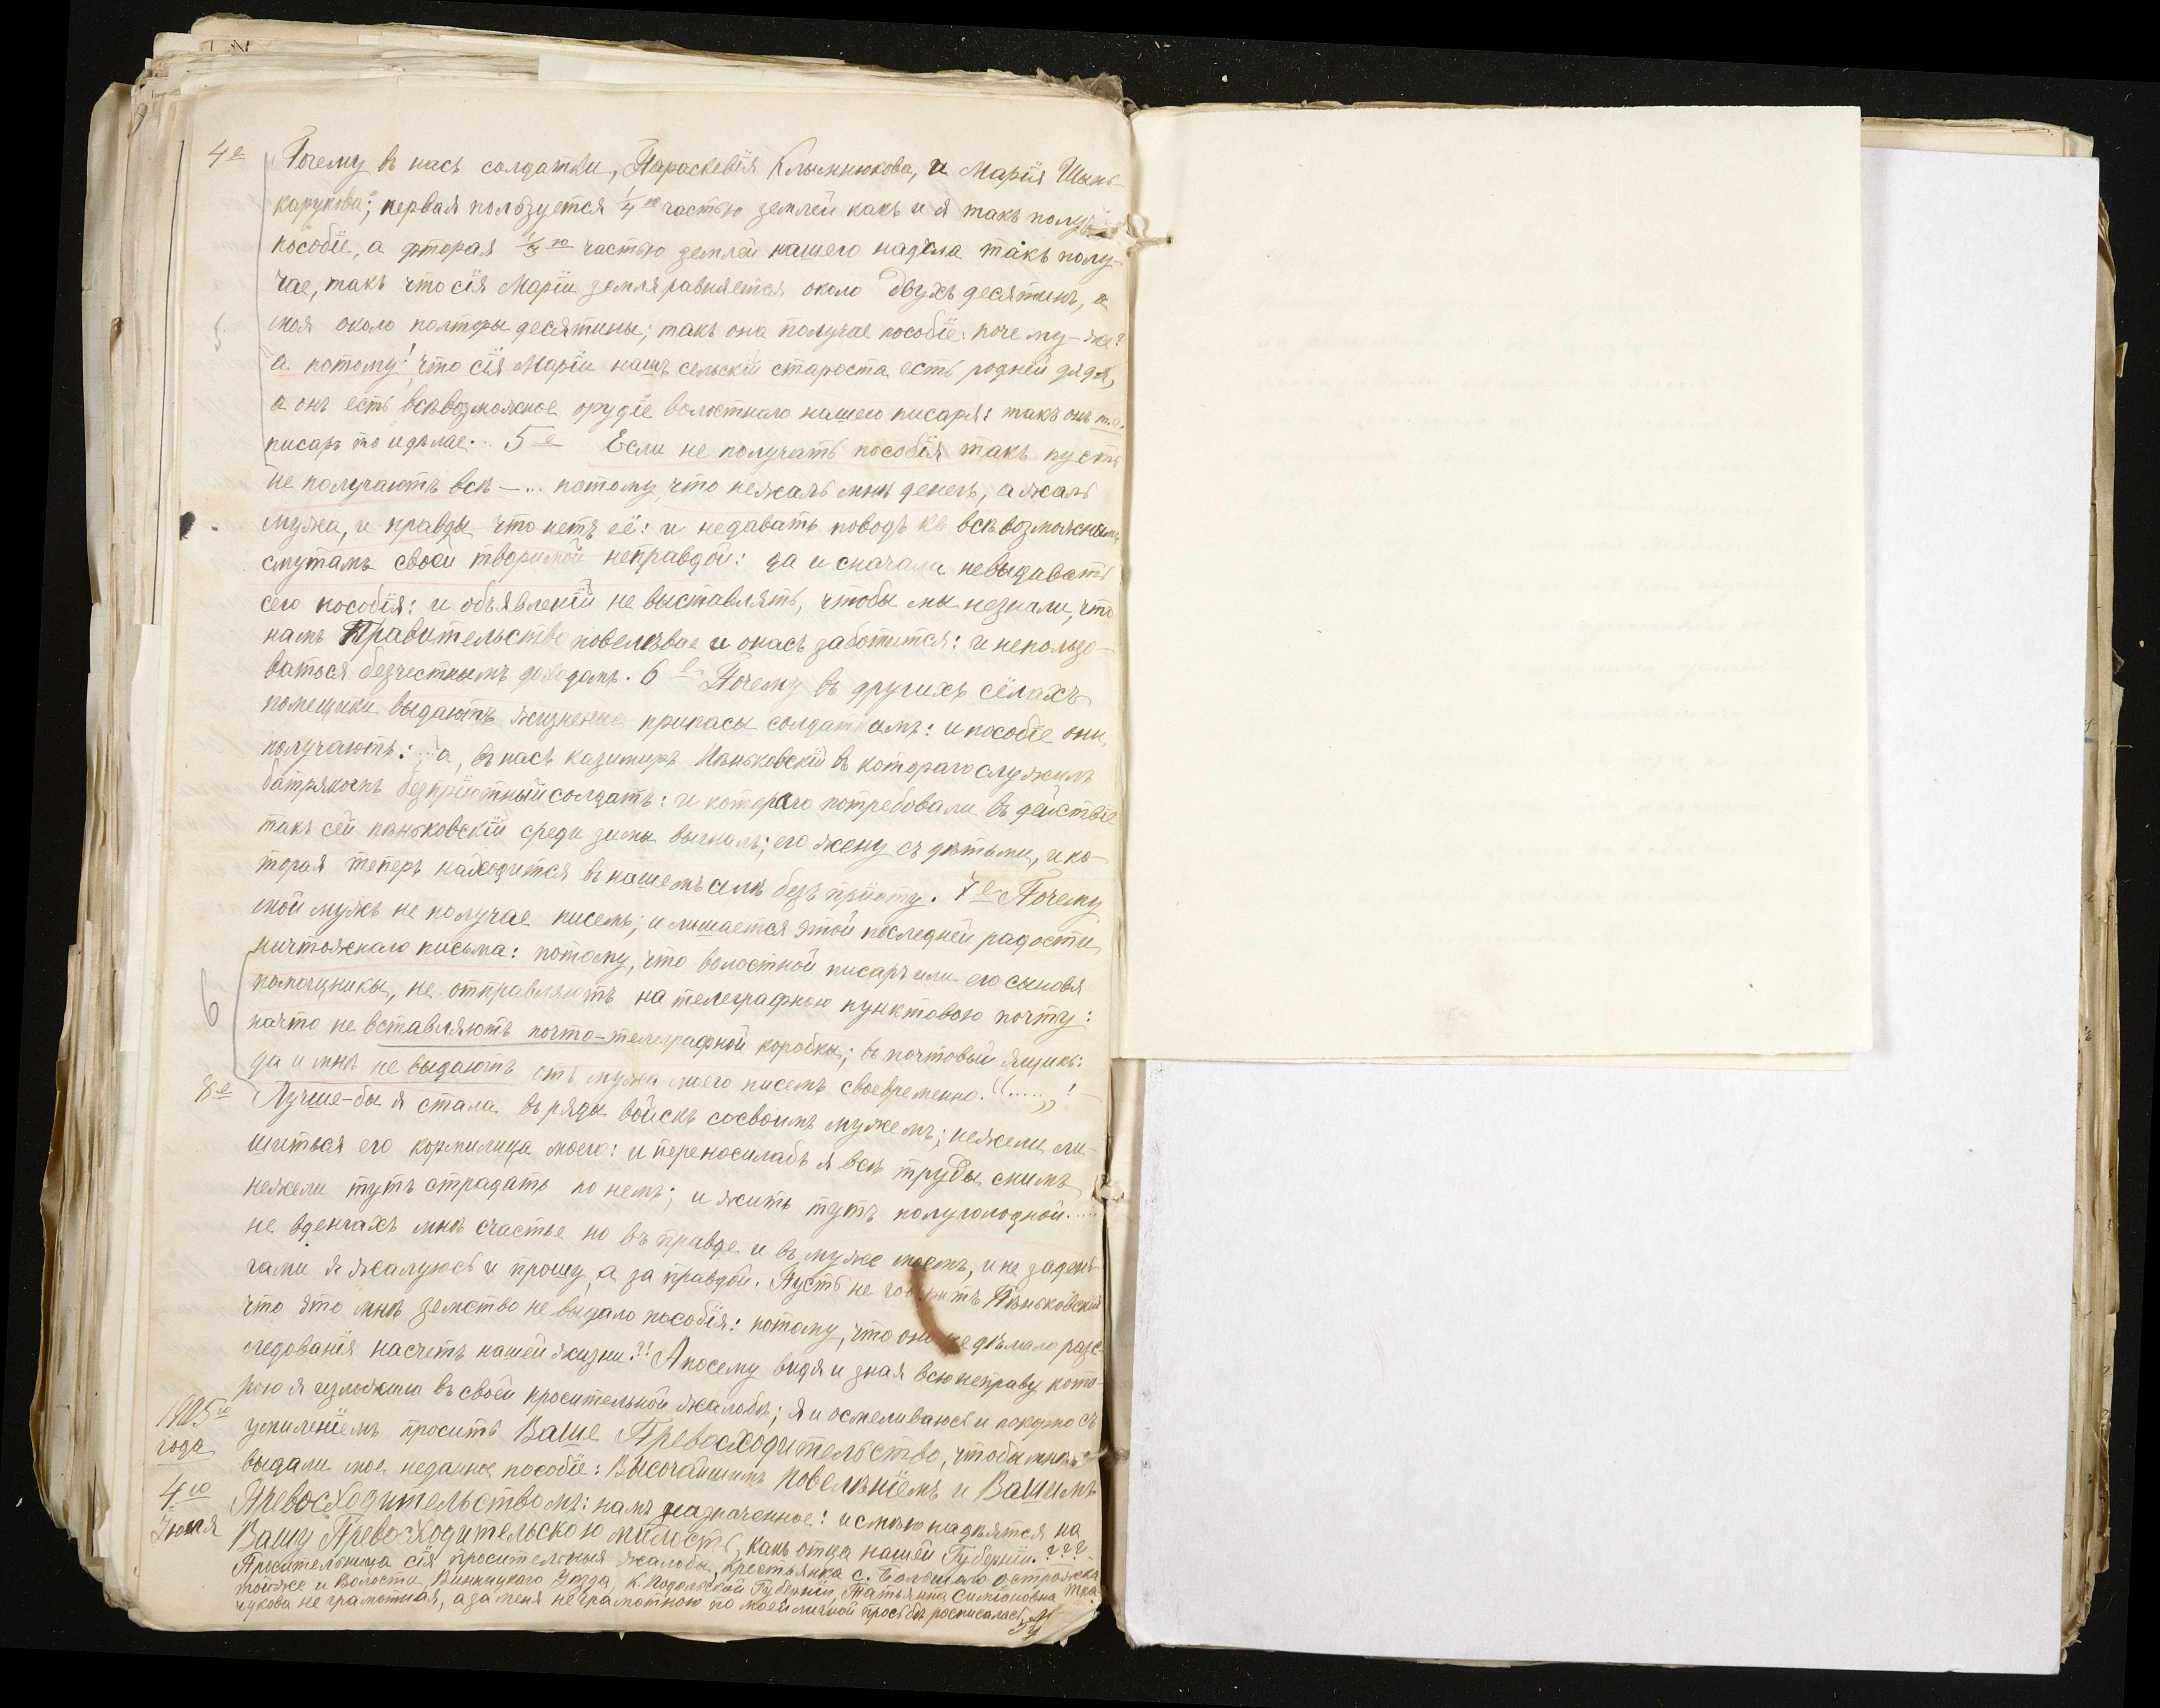 4е Почему въ насъ солдатки, Параскевія Клымнюкова, и Марія Шынь-
карукова; первая пользуется 1/4ю частью землей какъ и я такъ получ
пособіе, а фторая 1/3ю частью землей нашего надѣла такъ полу-
чае, такъ что сія Маріи земля равняется около двухъ десятинъ, а
моя около полторы десятины; такъ она получае пособіе: почему-же?
а потому! что сія Маріи нашъ сельскій староста есть родной дядя,
а онъ есть всѣвозможное орудіе волостнаго нашего писаря: такъ онъ т.е.
писаръ то и дѣлае. 5е Если не получать пособія такъ пусть
не получаютъ всѣ — ... потому, что не жаль мнѣ денегъ, а жаль
мужа, и правды что нетъ её: и недавать поводъ къ всѣвозможнымъ
смутамъ своей творимой неправдой: да и сначала невыдавать
сего пособія: и объявленій не выставлять, чтобы мы незнали, что
намъ Правительство повелѣвае и онасъ заботится: и непользо-
ваться безчестнымъ доходамъ. 6е Почему въ другихъ сёлахъ
помещики выдаютъ жизненые припасы солдаткамъ: и пособіе они
получаютъ: ... а, въ насъ казимиръ Пѣньковскій въ котораго служилъ
батракомъ безпріютный солдатъ: и котораго потребовали въ действіе
такъ сей пѣньковскій среди зимы выгналъ; его жену съ дѣтьми, и ко-
торая теперъ находится въ нашемъ селѣ безъ пріюту. 7е Почему
мой мужъ не получае писемъ; и лишается этой последней радости
ничтожнаго письма: потому, что волостной писаръ или его сыновя
помощники, не отправляютъ на телеграфною пунктовою почту:
начто не вставляютъ почто-телеграфной коробки; въ почтовый ящикъ:
да и мнѣ не выдаютъ отъ мужа моего писемъ своевременно. "....." !
8е Лучше-бы я стала въ ряды войскъ сосвоимъ мужемъ; нежели ли-
шиться его кормилица моего: и переносилабъ я всѣ труды снимъ
нежели тутъ страдать по немъ; и жить тутъ полуголодной.....
не вденгахъ мнѣ счастье но въ правде и въ муже моемъ, и не задень-
гами я жалуюсь и прошу, а за правдой. Пусть не говоритъ Пѣньковскій
что это мнѣ земство не выдало пособія: потому, что оно не дѣлало разс
ледованія насчетъ нашей жизни.?! А посему видя и зная всю неправу кото-
рою я изложила въ своей просительной жалобѣ; я и осмеливаюсь и съ
1905го года умиленіемъ просить Ваше Превосходительство, чтобы мнѣ
выдали мое неданное пособіе: Высочайшимъ повелѣніемъ и Вашимъ
4го Іюля Превосходительствомъ: намъ назначенное: и смѣю надѣятся на
Вашу Превосходительскою милость, какъ отца нашей Губерніи. ???
Просительница сія просительныя жалобы, крестьянка с. Большаго Острожка
тойже и Волости, Винницкаго Уѣзда, К. Подольской Губерніи, Татьянна Симіоновна Тка-
чукова не грамотная, а за меня неграмотною по моей личной просьбѣ росписалась
5
6